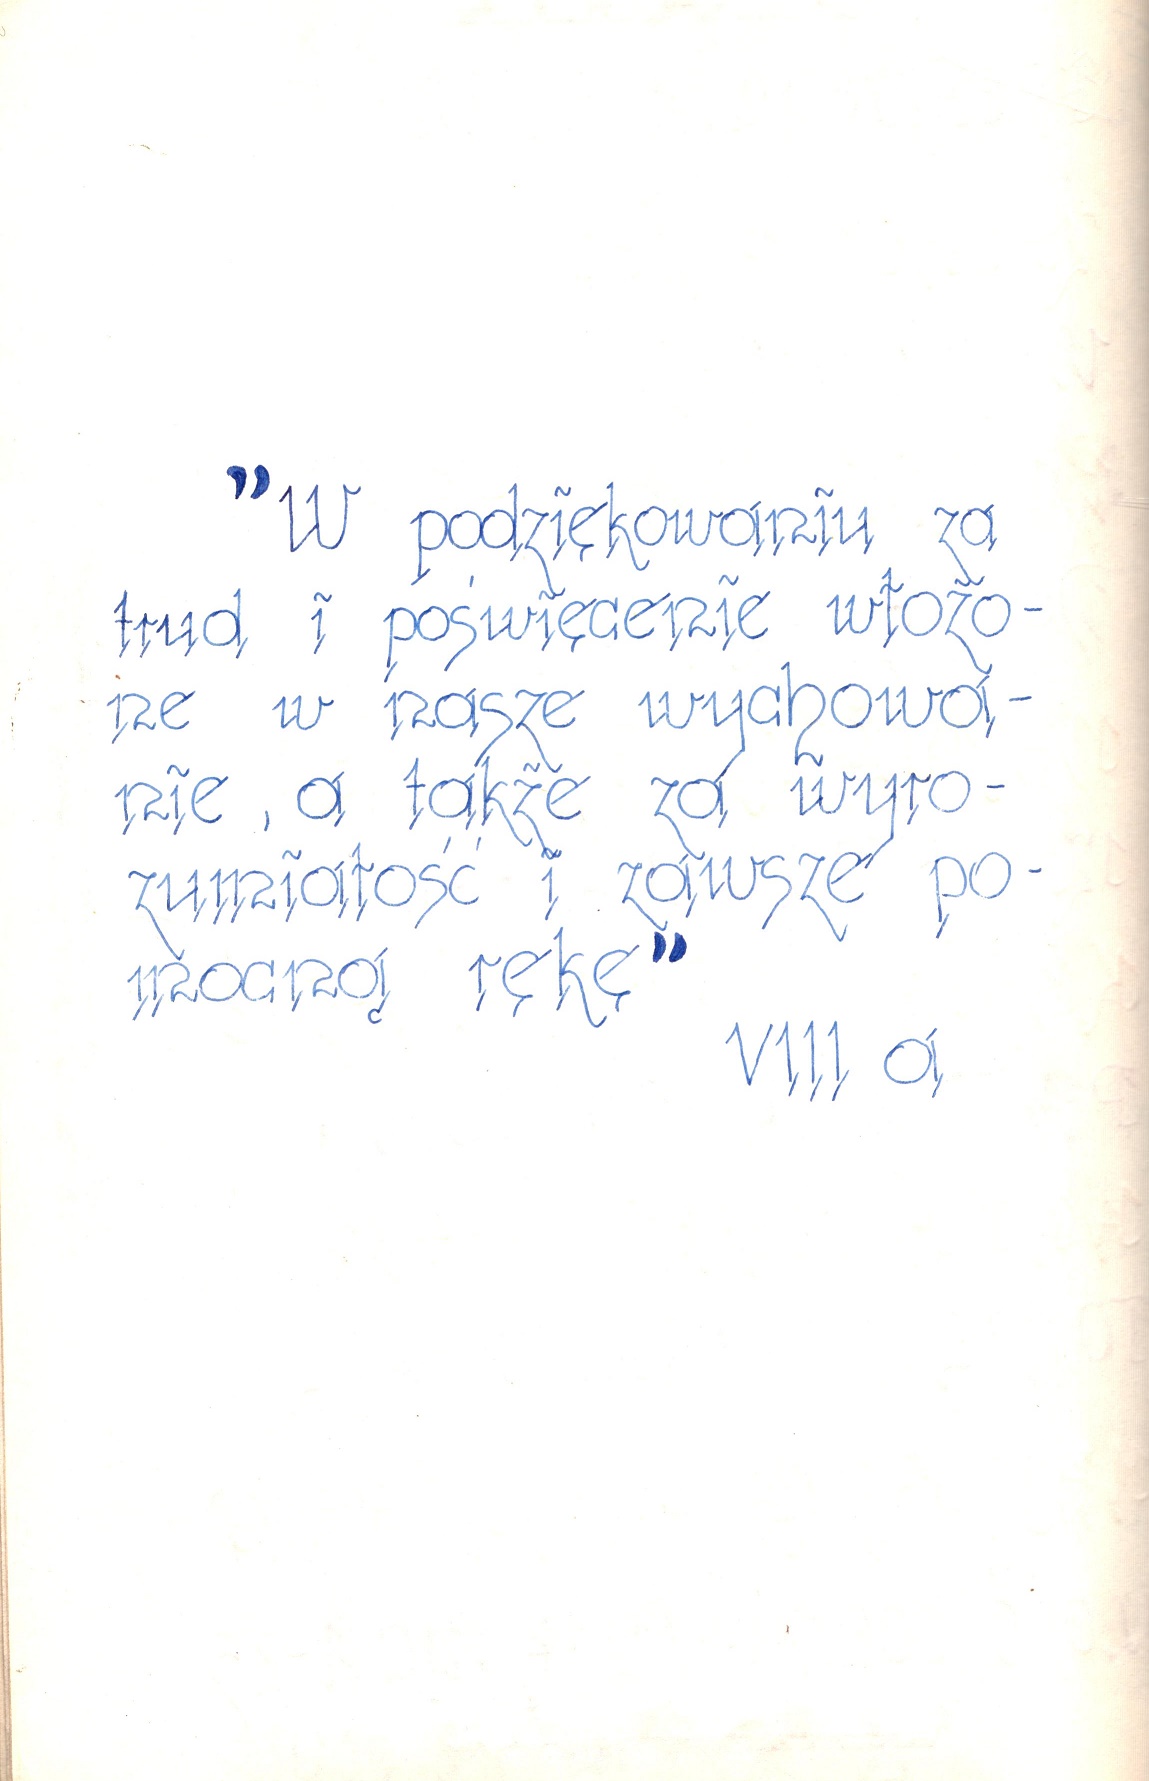 "W podziękowaniu za
trud i poświęcenie włożo-
ne w nasze wychowa-
nie, a także za wyro-
zumiałość i zawsze po-
mocną rękę"
VIII a